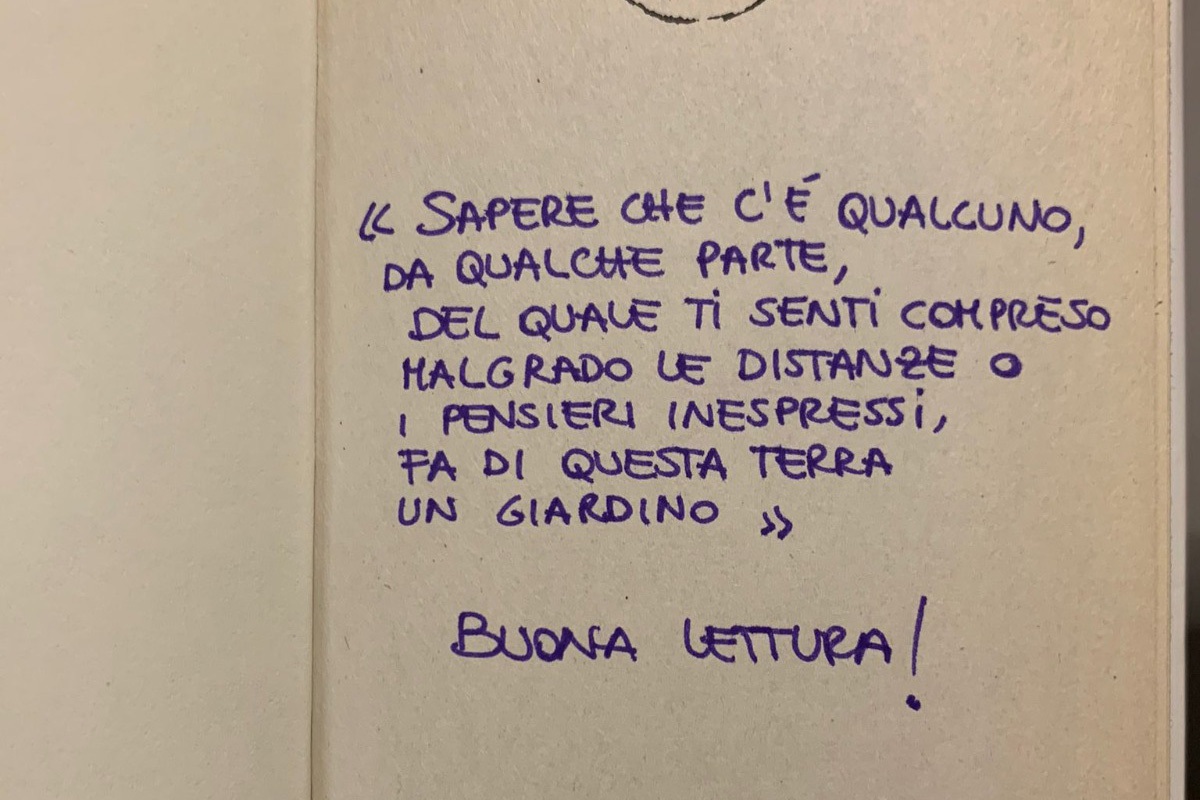 « SAPERE CHE C'É QUALCUNO,
DA QUALCHE PARTE,
DEL QUALE TI SENTI COMPRESO
MALGRADO LE DISTANZE O
I PENSIERI INESPRESSI,
FA DI QUESTA TERRA
UN GIARDINO »
BUONA LETTURA!